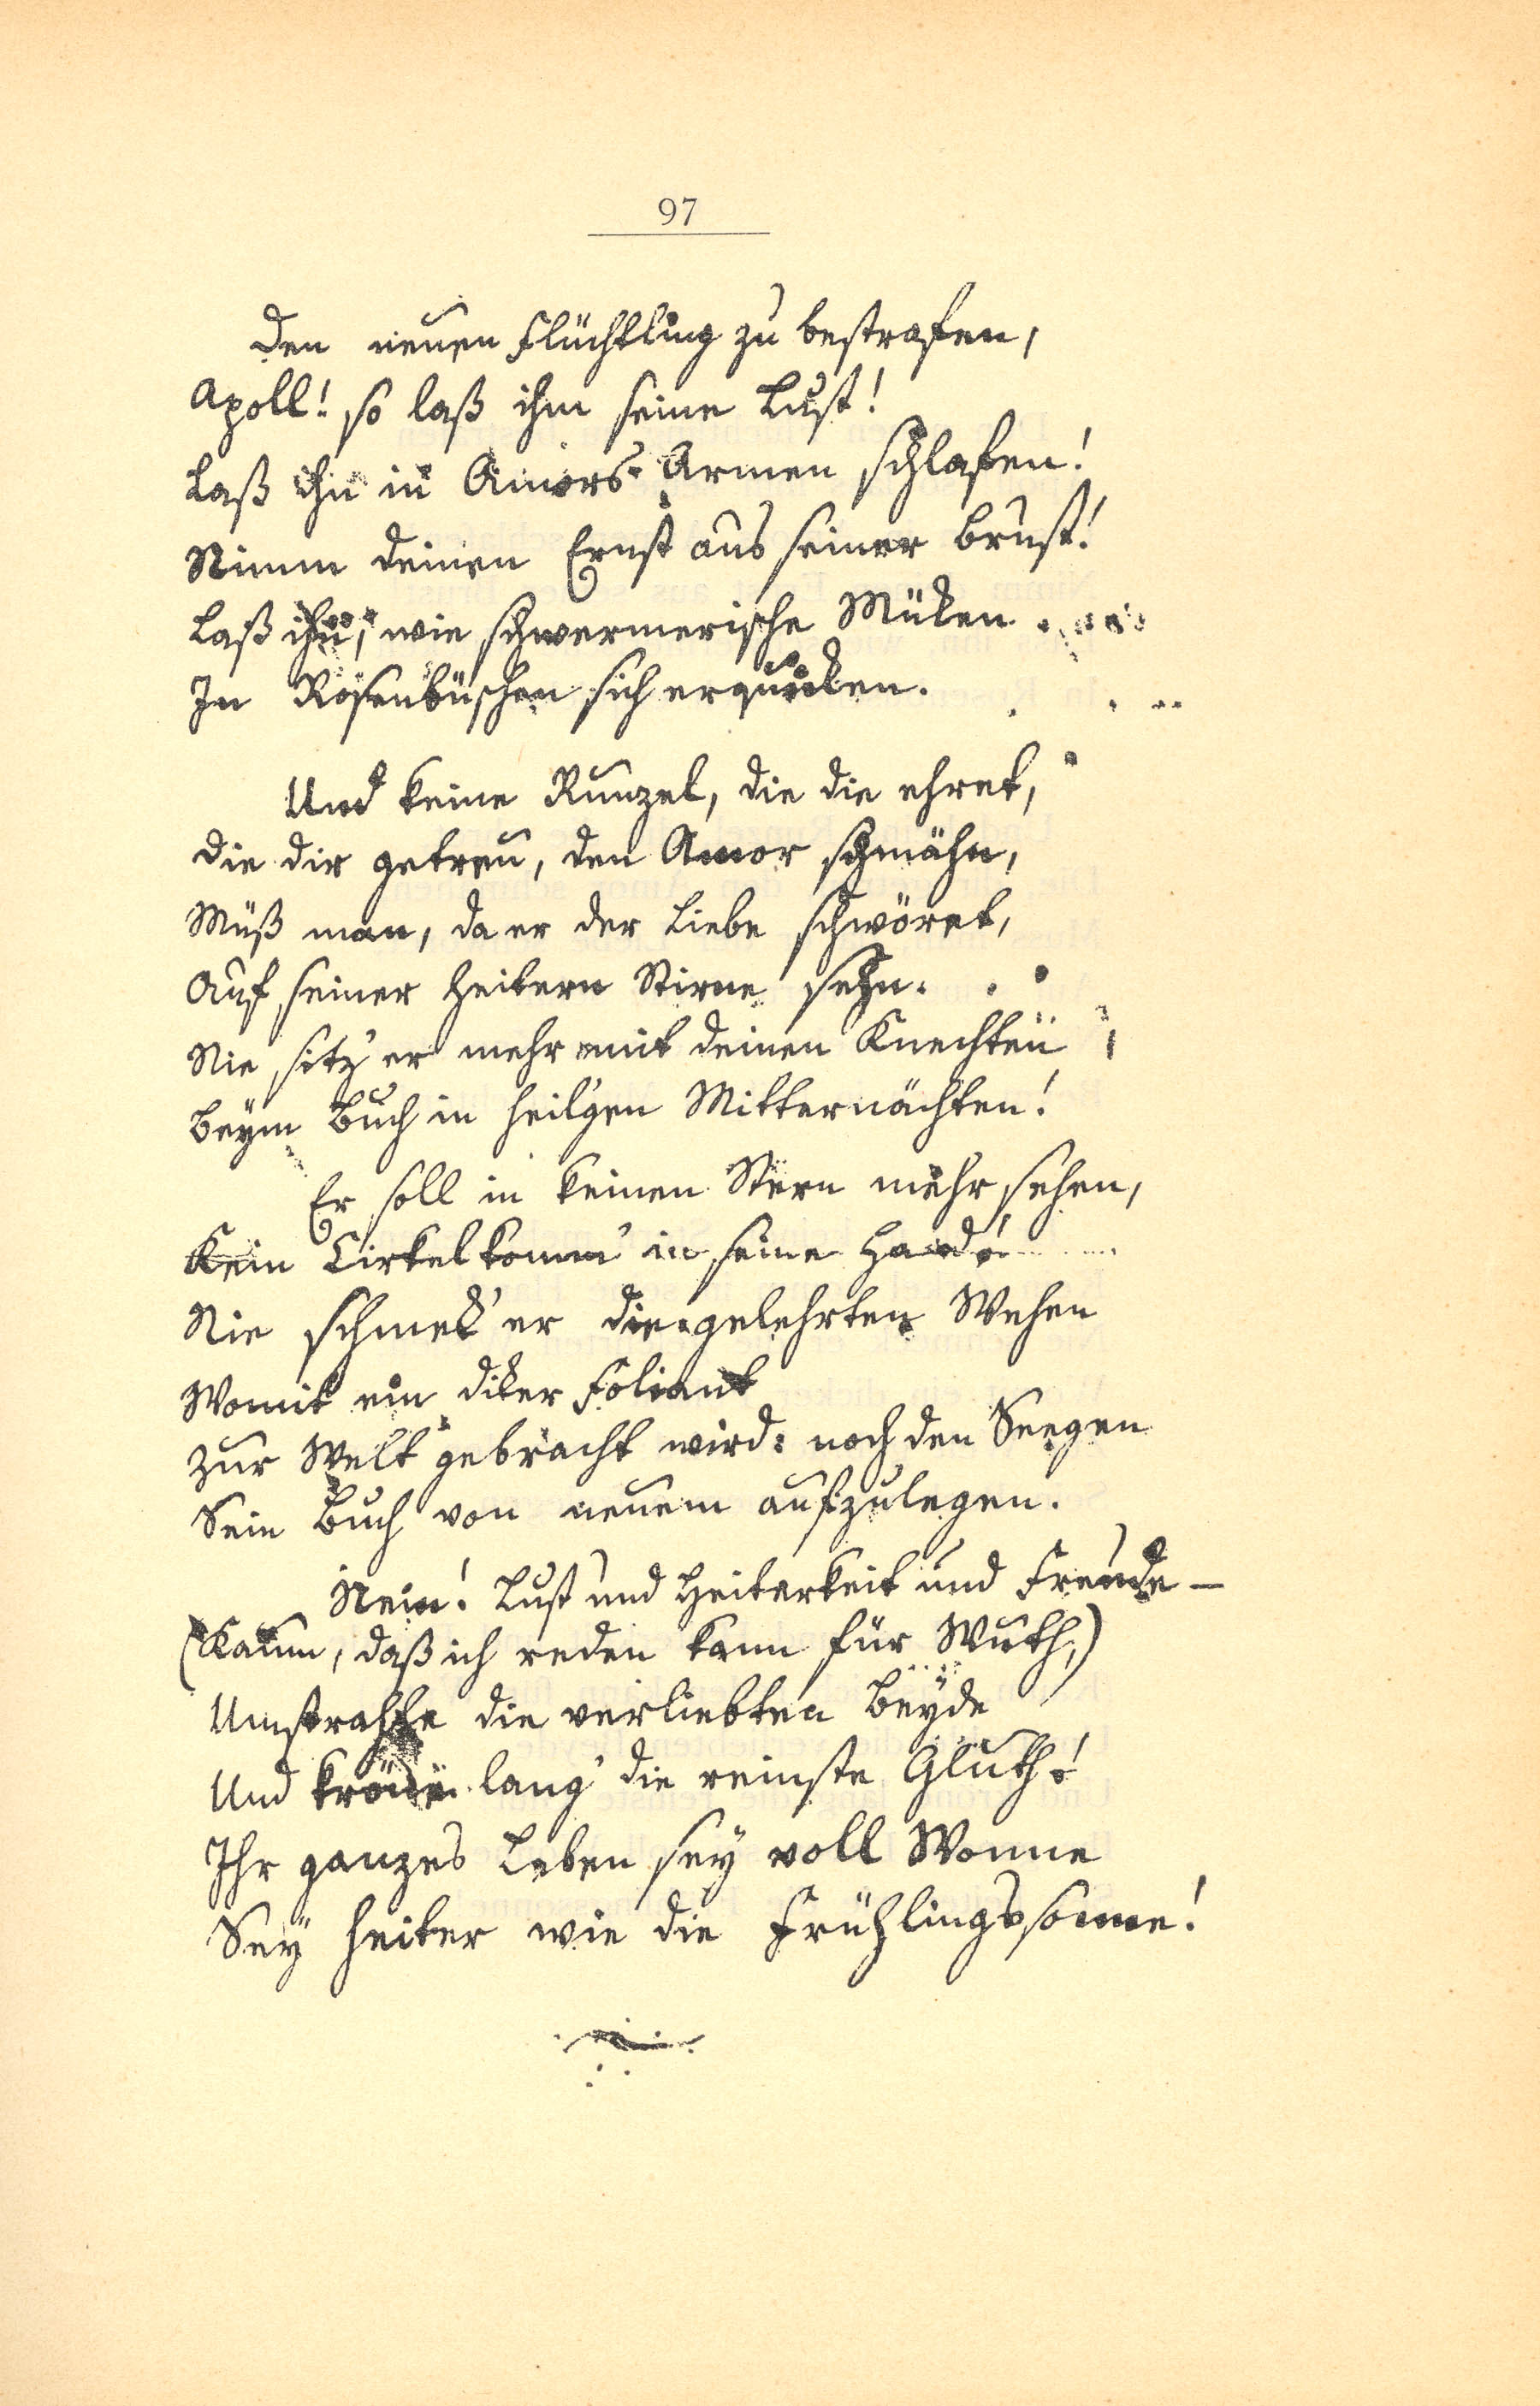 97
Den neuen Flüchtling zu bestrafen,
Apoll! so laß ihm seine Lust!
Laß ihn in Amors Armen schlafen!
Nimm deinen Ernst aus seiner Brust!
Laß ihn, wie schwermerische Müken
In Rosenbüschen sich erquiken.
Und keine Runzel, die die ehret,
Die dir getreu, den Amor schmähn,
Müß man, da er der Liebe schwöret,
Auf seiner heitern Stirne sehn.
Nie sitz' er mehr mit deinen Knechten
Beym Buch in heil'gen Mitternächten!
Er soll in keinen Stern mehr sehen,
Kein Cirkel komm' in seine Hand!
Nie schmek' er die gelehrten Wehen
Womit ein diker Foliant
Zur Welt gebracht wird: noch den Seegen
Sein Buch von neuem aufzulegen.
Nein! Lust und Heiterkeit und Freude –
(Kaum, daß ich reden kann für Wuth,)
Umstrahle die verliebten Beyde
Und kröne lang' die reinste Gluth!
Ihr ganzes Leben sey voll Wonne
Sey heiter wie die Frühlingssonne!